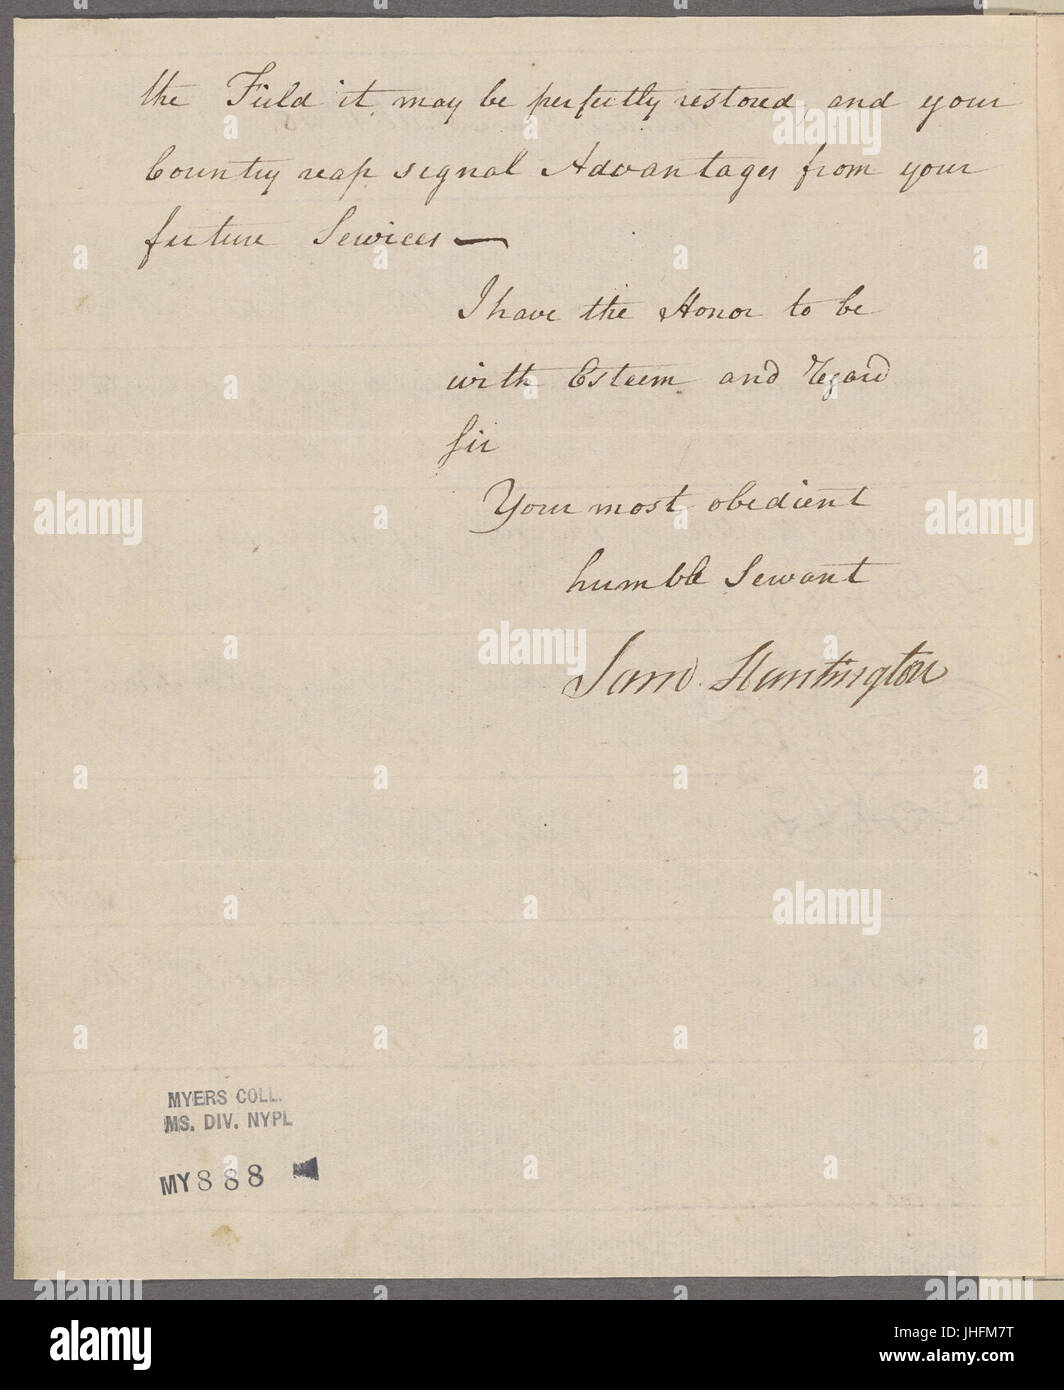 the Field it may be perfectly restored, and your
Country reap signal Advantages from your
future Services —
I have the Honor to be
with Esteem and Regard
Sir
Your most obedient
humble Servant
Sam Huntington
MYERS COLL.
MS. DIV. NYPL
MY 888
alamy
Image ID: JHFM7T
www.alamy.com